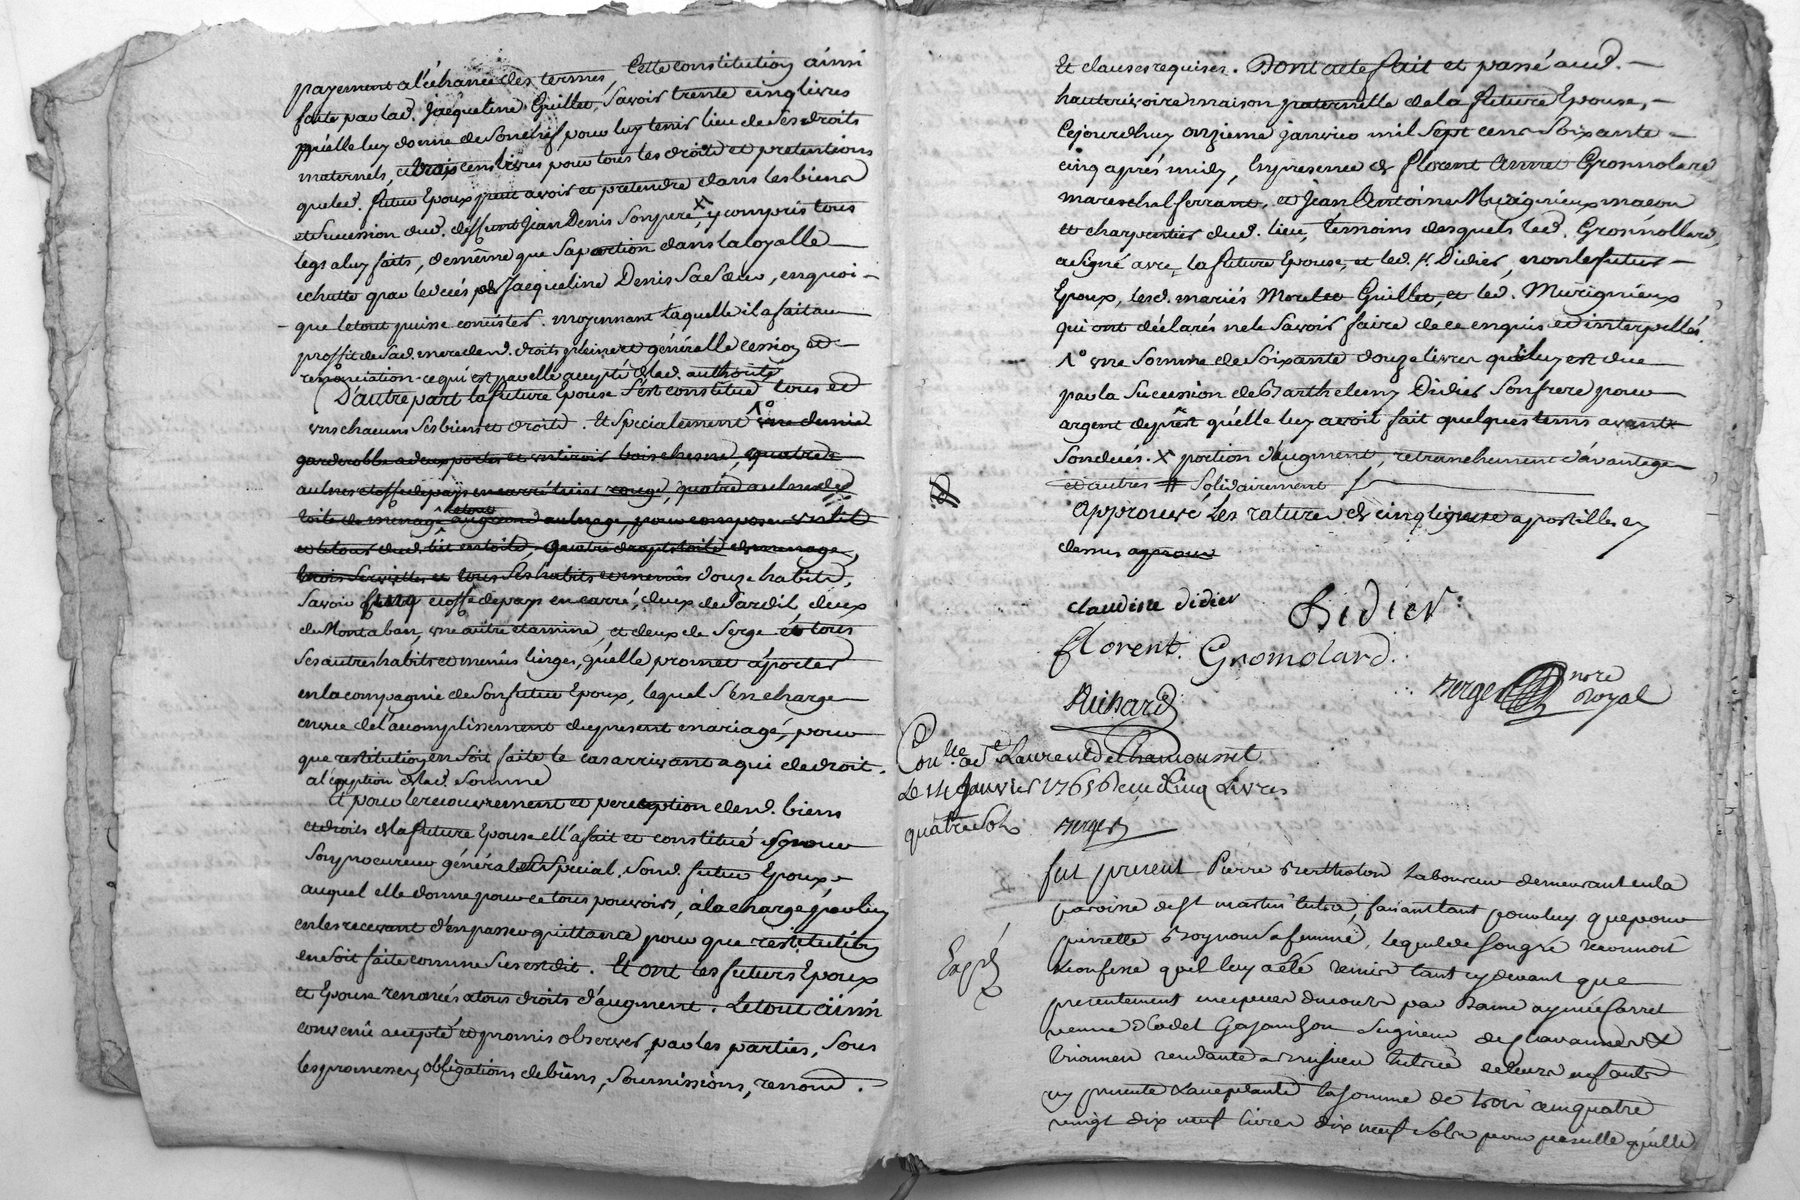 payement a l'échance des termes, Cette constitution ainsi
faite par lad. Jacqueline Guillet, Savoir trente cinq livres
qu'elle luy donne de son chef, pour luy tenir lieu de ses droits
maternels, et trois cens livres pour tous les droits et pretentions
que led. futur Epoux peut avoir et pretendre dans les biens
et Succession dud. deffunt Jean Denis Son pere, x y compris tous
legs a luy faits, de même que Sa portion dans la loyalle
echutte par le décés de Jacqueline Denis Sa Sœur, en quoi -
- que le tout puisse consister. moyennant laquelle il a fait au
proffit de Sad. mere de sd. droits pleine et généralle cession et -
renonciation - ce qui est par elle accepté de lad. authorité
D'autre part la future Epouse S'est constitué tous et
uns chacuns Ses biens et droits. Et Specialement 1° une demie
garderobbe a deux portes et un tiroir bois chesne, quatre
aulnes etoffe de pays en carré teint rouge, quatre aulnes de
toile de menage le tout au grand aulnage, pour composer un lit
et le tour dud. lit en toile, quatre draps toile de menage,
trois Serviettes et tous Ses habits et menus douze habits,
Savoir cinq etoffe de pays en carré, deux de Cardil, deux
de Montaban, une autre etamine, et deux de Serge et tous
Ses autres habits et menus linges, qu'elle promet apporter
en la compagnie de Son futur Epoux, lequel S'en charge
en vue de l'acomplissement du present mariagé, pour
que restitution en Soit faite le cas arrivant a qui de droit.
a l'exeption de lad. Somme
Et pour le recouvrement et perception de sd. biens
et droits de la future Epouse ell'a fait et constitué
Son procureur général et Special. Sond. futur Epoux -
auquel elle donne pour ce tous pouvoirs, à la charge par luy
en les recevant d'en passer quittance pour que restitution
en Soit faite comme Sus est dit. Et ont les futurs Epoux
et Epouse renoncés a tous droits d'augment. Le tout ainsi
convenu accepté et promis observer par les parties, Sous
les promesses, obligations de biens, Soumissions, renond.
Et clauses requises. Dont acte fait et passé aud. -
hauterivoire maison paternelle de la future Epouse, -
Cejourdhuy onzieme janvier mil Sept cens Soixante -
cinq aprés midy, En presence de florent Grosmolard
mareschal ferrant, et Jean Antoine Murignieux macon
et charpentier dud. lieu, témoins desquels led. Grosmollard,
a signé avec la future Epouse, et led. Sr. Didier, non le futur -
Epoux, lesd. mariés Guillet, et led. Murignieux
qui ont déclarés ne le Savoir faire de ce enquis et interpellés.
1° une Somme de Soixante douze livres qu'il luy est due
par la Succession de Barthelemy Didier Son frere pour
argent de prêt qu'elle luy avoit fait quelques tems avant
Son décés. x portion d'augment, retranchement d'avantage
et autres # Solidairement
Approuvé les ratures de cinq lignes apostilles cy
dessus approuv
Claudine didier Didier
florent. Gromolard.
Richard Berger nore Royal
Con.lle a St. Laurent de Chamousset
Le 14 Janvier 1765 Recu Cinq Livres
quatre Sols Berger
fut present Pierre Bertholon Laboureur demeurant en la
paroisse de St martin lestra, faisant tant pour luy que pour
pierrette Boynou Sa femme, lequel de Son gré reconnoit
& confesse quil luy a été remis tant cy devant que
Expé
presentement en especes du cours par Dame aymée Carret
veuve Seigneur de chavannes &
rendante a tutrice de leurs enfants
cy presente & acceptante la Somme de trois cens quatre
vingt dix neuf livres dix neuf Sols pour pareille qu'elle